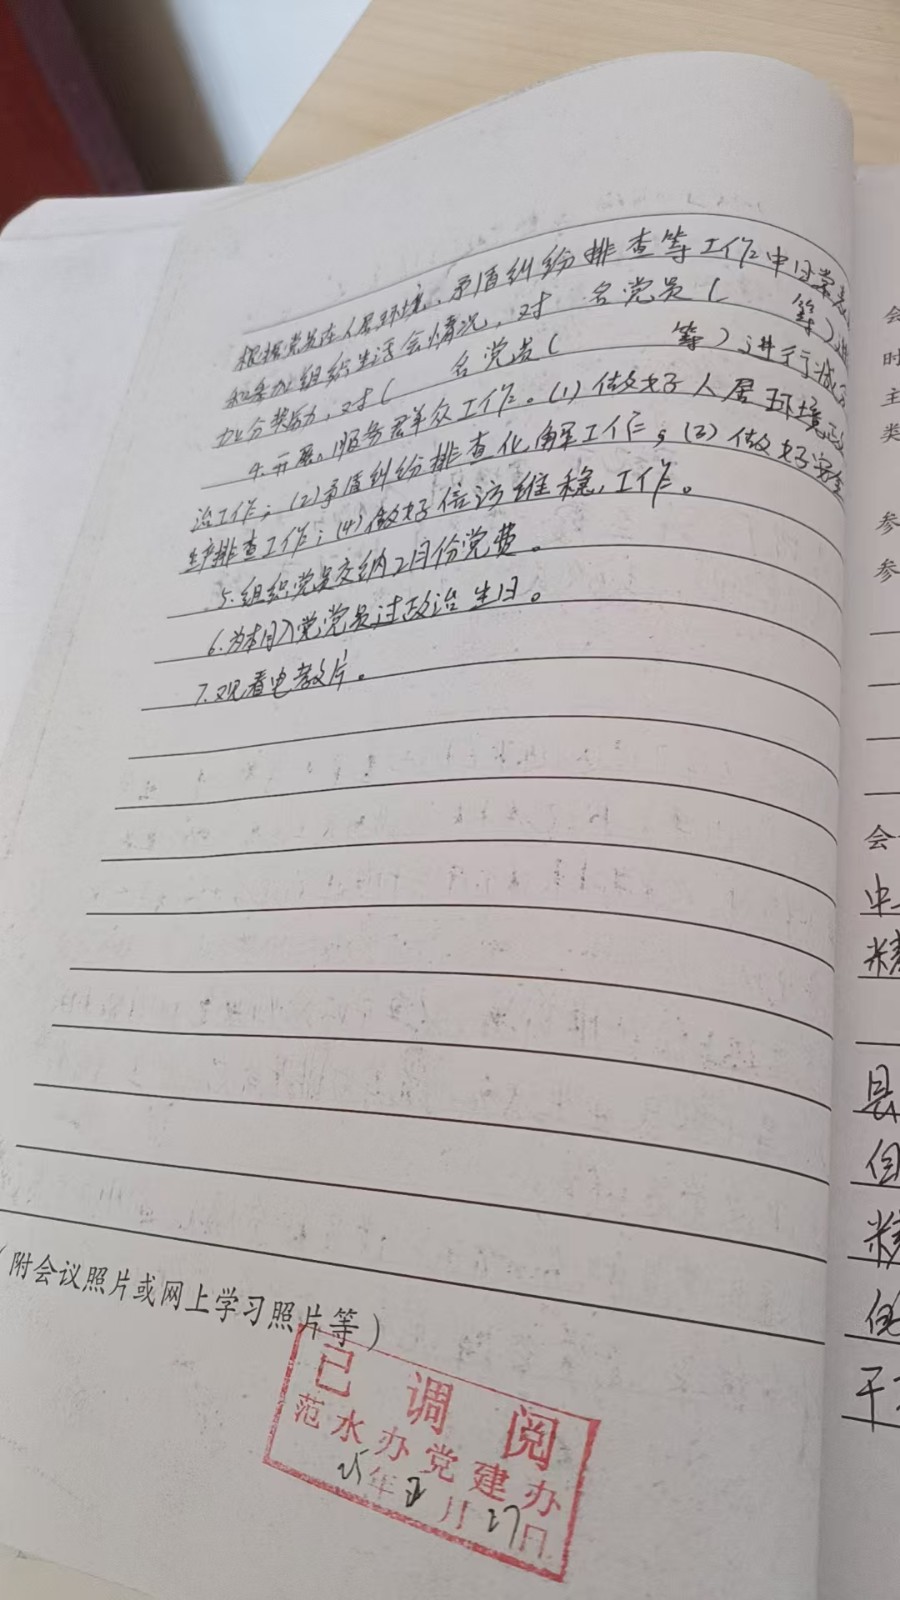 根据党员在人居环境、矛盾纠纷排查等工作中日常表
和参加组织生活会情况，对　名党员（　等）进
加分奖励，对（　名党员（　等）进行减分
4.开展。服务群众工作。(1)做好人居环境整
治工作；(2)矛盾纠纷排查化解工作；(3)做好安全
生产排查工作；(4)做好信访维稳工作。
5.组织党员交纳2月份党费。
6.为本月入党党员过政治生日。
7.观看电教片。
（附会议照片或网上学习照片等）
已调阅
范水办党建办
25年2月27日
会
时
主
类
参
参
会
中
精
县
但
干